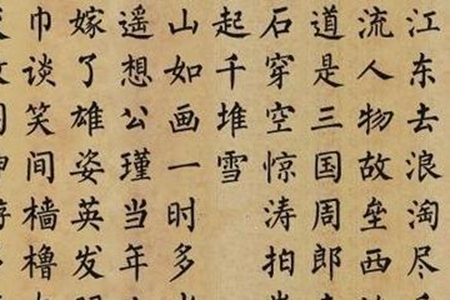 江东去浪淘尽
流人物故垒西
道是三国周郎
石穿空惊涛拍
起千堆雪
山如画一时多
遥想公瑾当年
嫁了雄姿英发
巾谈笑间樯橹